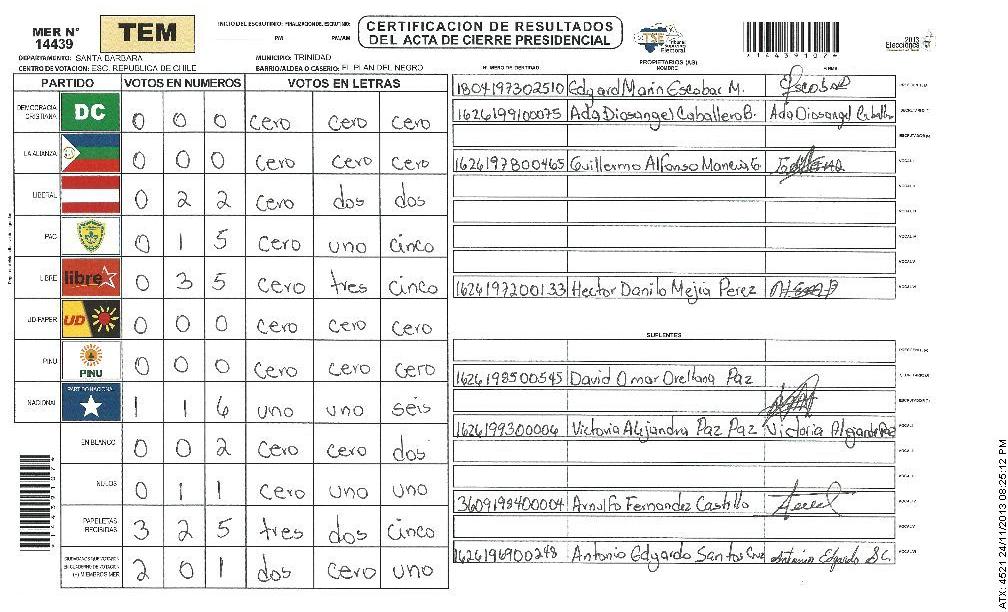 MER N° 14439
TEM
INICIO DEL ESCRUTINIO: FINALIZACION DEL ESCRUTINIO:
PM PM/AM
CERTIFICACION DE RESULTADOS
DEL ACTA DE CIERRE PRESIDENCIAL
TSE Tribunal Supremo Electoral
1443910 7
2013 Elecciones
DEPARTAMENTO: SANTA BARBARA
MUNICIPIO: TRINIDAD
CENTRO DE VOTACION: ESC. REPUBLICA DE CHILE
BARRIO/ALDEA O CASERIO: EL PLAN DEL NEGRO
PARTIDO VOTOS EN NUMEROS VOTOS EN LETRAS
DEMOCRACIA CRISTIANA DC 0 0 0 cero cero cero
LA ALIANZA 0 0 0 cero cero cero
LIBERAL 0 2 2 cero dos dos
PAC 0 1 5 cero uno cinco
LIBRE libre 0 3 5 cero tres cinco
UD/FAPER UD 0 0 0 cero cero cero
PINU PINU 0 0 0 cero cero cero
NACIONAL PARTIDO NACIONAL 1 1 6 uno uno seis
EN BLANCO 0 0 2 cero cero dos
NULOS 0 1 1 cero uno uno
PAPELETAS RECIBIDAS 3 2 5 tres dos cinco
CIUDADANOS QUE VOTARON EN CUADERNO DE VOTACION (+) MIEMBROS MER 2 0 1 dos cero uno
PROPIETARIOS (AS)
NUMERO DE IDENTIDAD NOMBRE FIRMA
1804197302510 Edgard Marin Escobar M. Escobar PRESIDENTE(A)
1626199100075 Ada Diosangel Caballero B. Ada Diosangel Caballero SECRETARIO(A)
ESCRUTADOR(A)
1626197800465 Guillermo Alfonso VOCAL I
VOCAL II
VOCAL III
VOCAL IV
VOCAL V
1626197200133 Hector Danilo Mejia Perez VOCAL VI
SUPLENTES
PRESIDENTE(A)
1626198500545 David Omar Orellana Paz SECRETARIO(A)
ESCRUTADOR(A)
1626199300006 Victoria Alejandra Paz Paz Victoria Alejandra Paz VOCAL I
3609198400004 Arnulfo Fernandez Castillo
VOCAL V
1626196900248 Antonio Edgardo Santos Cruz Antonio Edgardo S.C. VOCAL VI
ATX: 4521 24/11/2013 08:25:12 PM